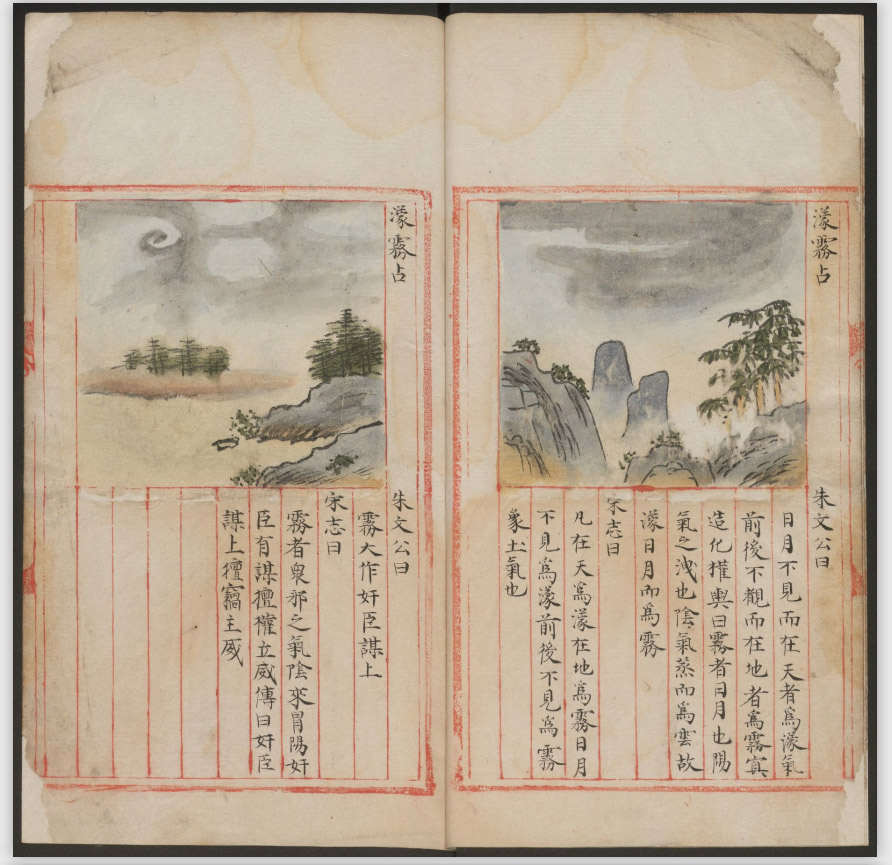 濛霧占
朱文公曰
日月不見而在天者爲濛氣
前後不觀而在地者爲霧寘
造化權輿曰霧者日月也陽
氣之洩也陰氣蒸而爲雲故
濛日月而爲霧
宋志曰
凡在天爲濛在地爲霧日月
不見爲濛前後不見爲霧
象土氣也
濛霧占
朱文公曰
霧大作奸臣謀上
宋志曰
霧者衆邪之氣陰來冒陽奸
臣有謀擅權立威傳曰奸臣
謀上擅竊主威